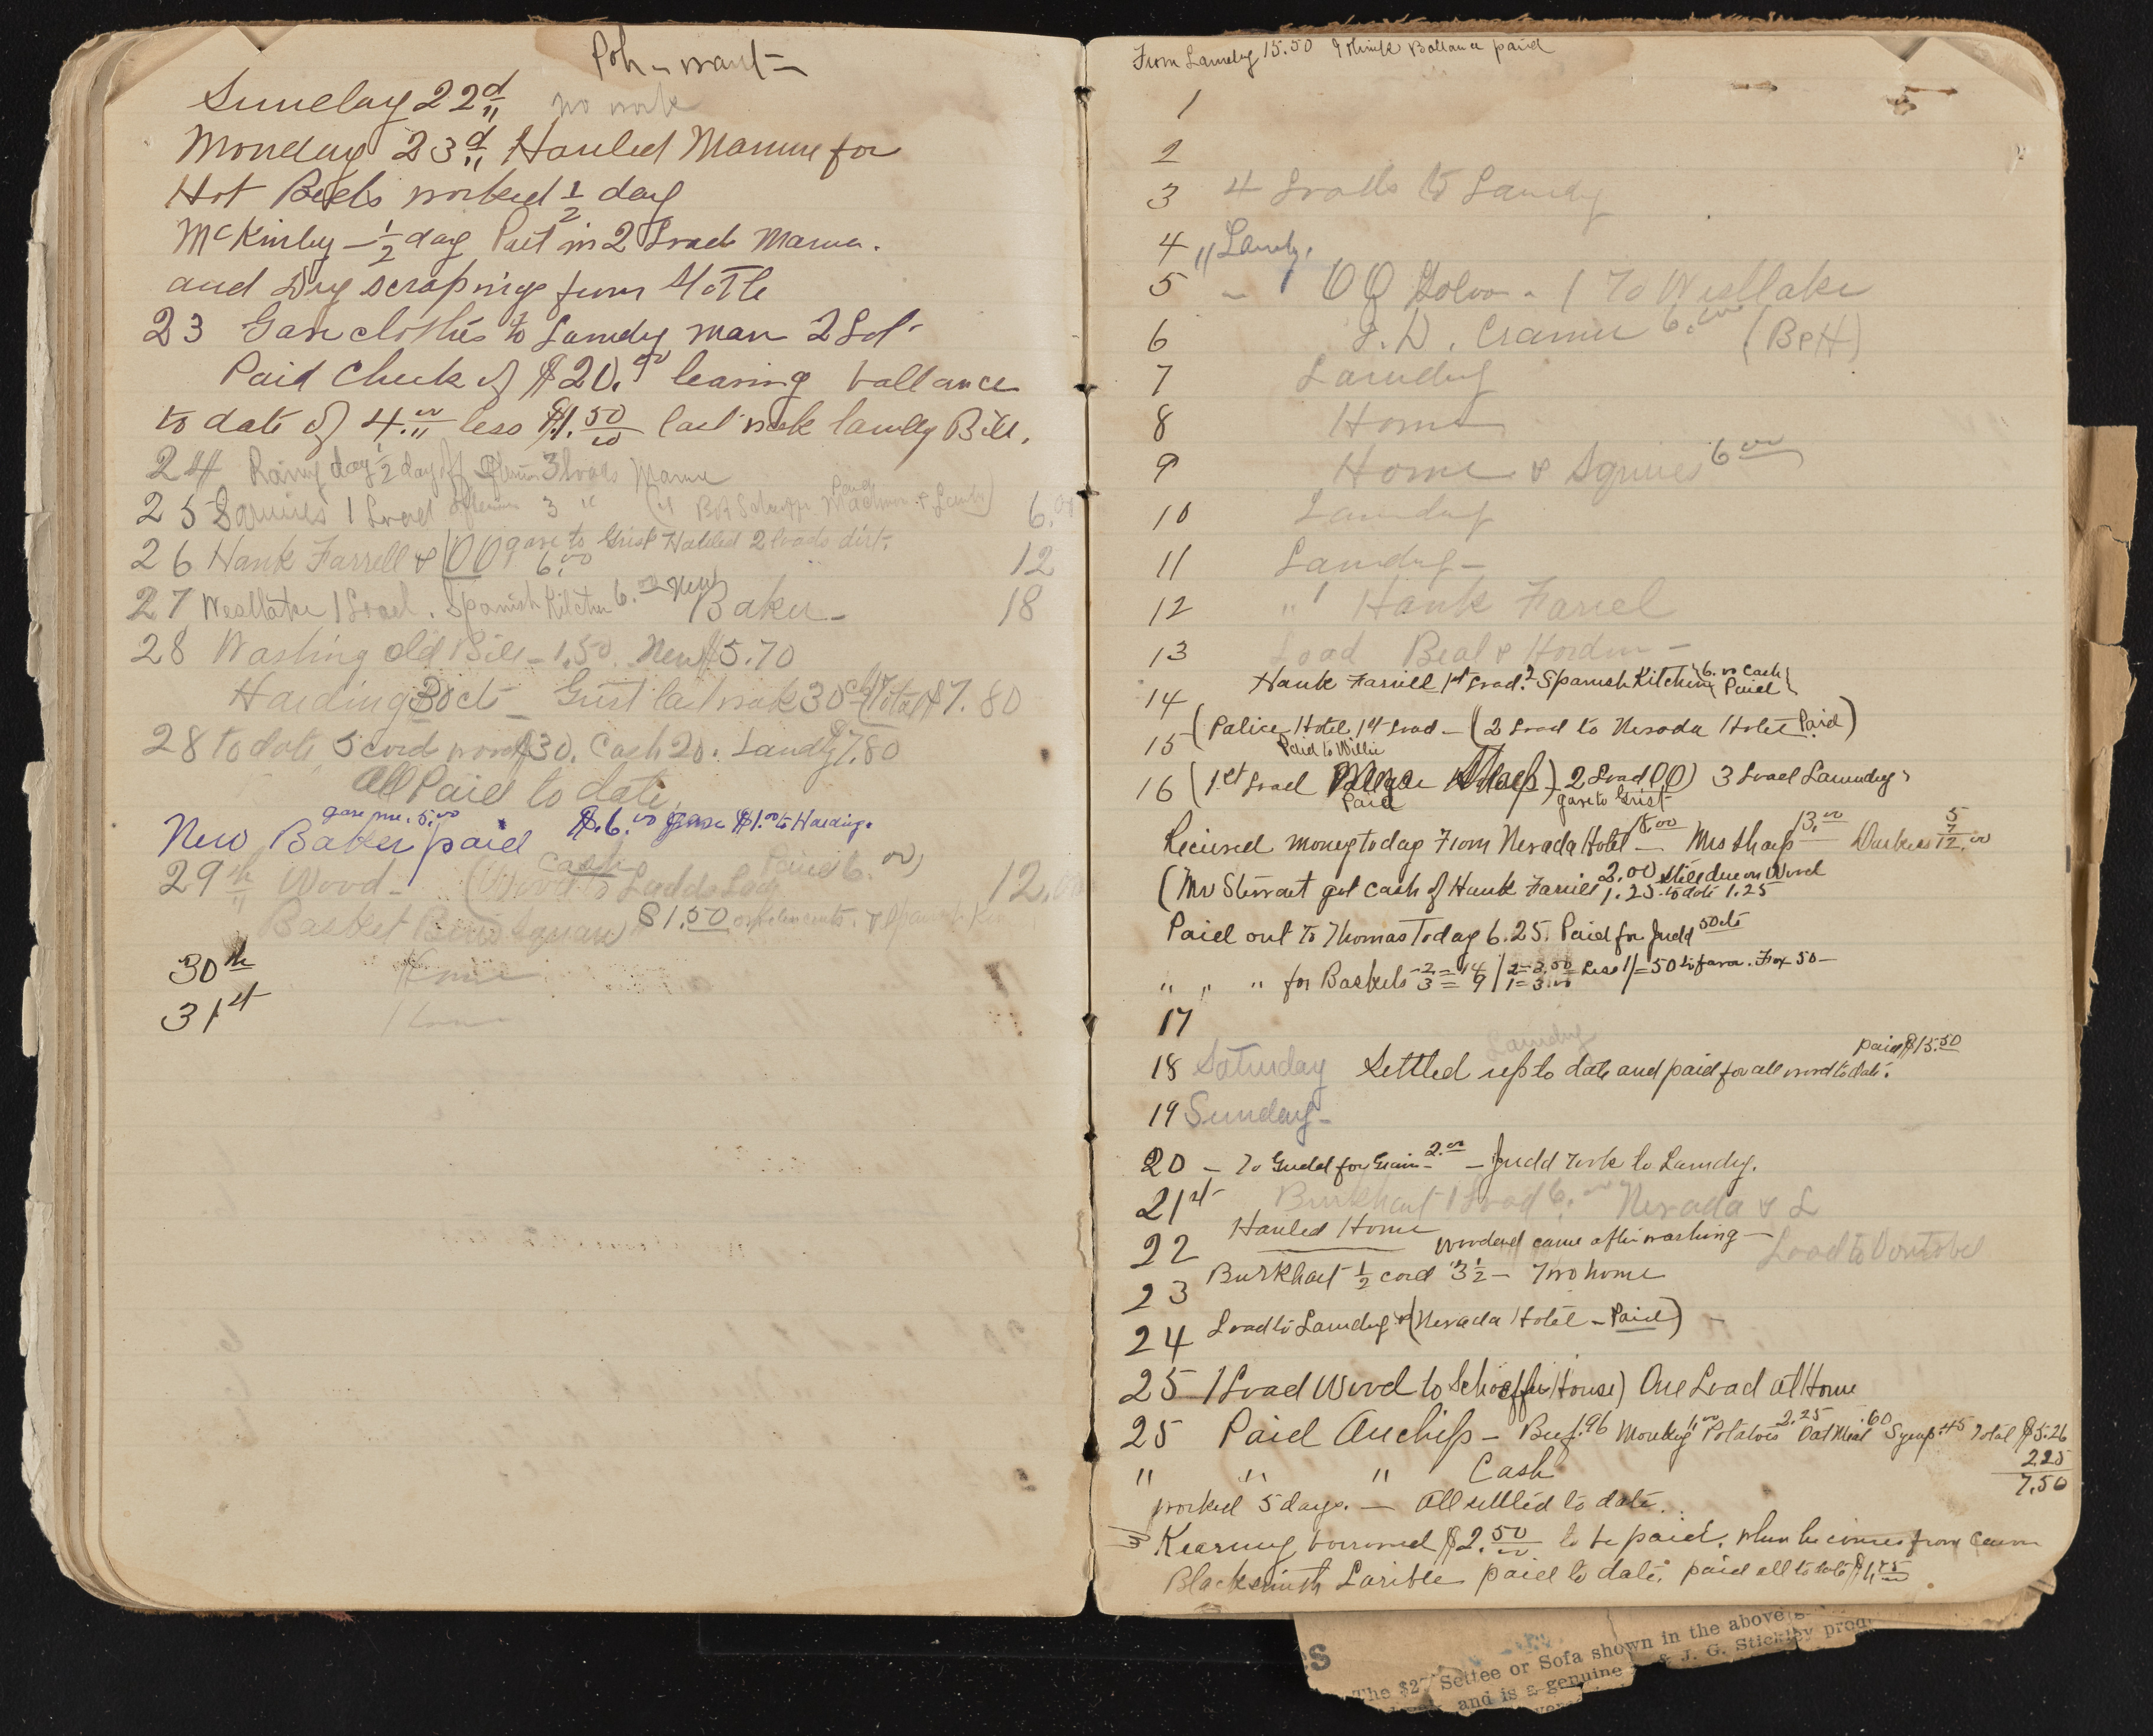 Sunday 22d no work
Monday 23d Hauled Manure for
Hot Beds worked 1/2 day
McKinley - 1/2 day Put in 2 Load Manur.
and Dry scrapings from
23 Gave clothes to Laundry man 2 Lots
Paid Check of $20.00 leaving ballance
to date of 4.00 less $1.50 last week laundry Bill.
24 Rainy day 1/2 day off 3 loads Manure
25 Squires 1 Load 3 " 6.00
26 Hank Farrell & OO gave to Grist Hauled 2 loads dirt.
6.00 12
27 Westlake 1 Load. Spanish Kitchen 6.00 New Baker - 18
28 Washing old Bill - 1.50. New $5.70
Harding 30 cts - Grist last week 30 cts Total $7.80
28 to date 5 cord wood $30. Cash 20. Laundry 7.80
All Paid to date,
gave me. 5.00
New Baker paid $.6.00 gave $1.00 to Harding.
29th Wood - (Wood to Ladds Cash Paid 6.00) 12.00
Basket $1.50
30th Home
31st Home
From Laundry 15.50 I think Ballance paid
1
2
3 4 Loads to Laundry
4 " Laundry.
5 - 1 OO - 1 To Westlake
6 L. D. Cramer 6.00 (B&H)
7 Laundry
8 Home
9 Home & Squires 6.00
10 Laundry
11 Laundry -
12 " 1 Hank Farrel
13 Load Beal & Hordin -
14 Hank Farrell 1st Load. 2 Spanish Kitchen {6.00 Cash Paid}
15 (Palice Hotel 1st Load - (2 Load to Nevada Hotel Paid)
Paid to Willie
16 (1st Load Sharp) 2 Load OO) 3 Load Laundry.
Paid gave to Grist
Recieved money today From Nevada Hotel - Mrs Sharp 13.00 12.00
(Mr Stewart got cash of Hank Farrell 2.00 still due on Wood
1.25 to date 1.25
Paid out to Thomas Today 6.25. Paid for Judd 50 cts
" " " for Baskets
17
Laundry
18 Saturday Settled up to date and paid for all wood to date. paid $15.50
19 Sunday -
20 - To Gudd for Grain - 2.00 - Judd took to Laundry.
21st Burkhart 1 Load 6.00 Nevada & L
22 Hauled Home
came after washing - Load to
23 Burkhart 1/2 cord 3 1/2 - Two home
24 Load to Laundry & (Nevada Hotel - Paid) -
25 1 Load Wood to Schoeffer House) One Load at Home
25 Paid Auchip - Beef .96 Monkey 1.00 Potatoes 2.25 Oat Meal .60 Syrup .45 Total $5.26
" " " Cash 2.25
7.50
worked 5 days. - All settled to date.
Kearney borrowed $2.50 to be paid. when he comes from
Blacksmith Larible paid to date. paid all to date
The $27 Settee or Sofa shown in the above
and is a genuine & J. G. Stickley prod